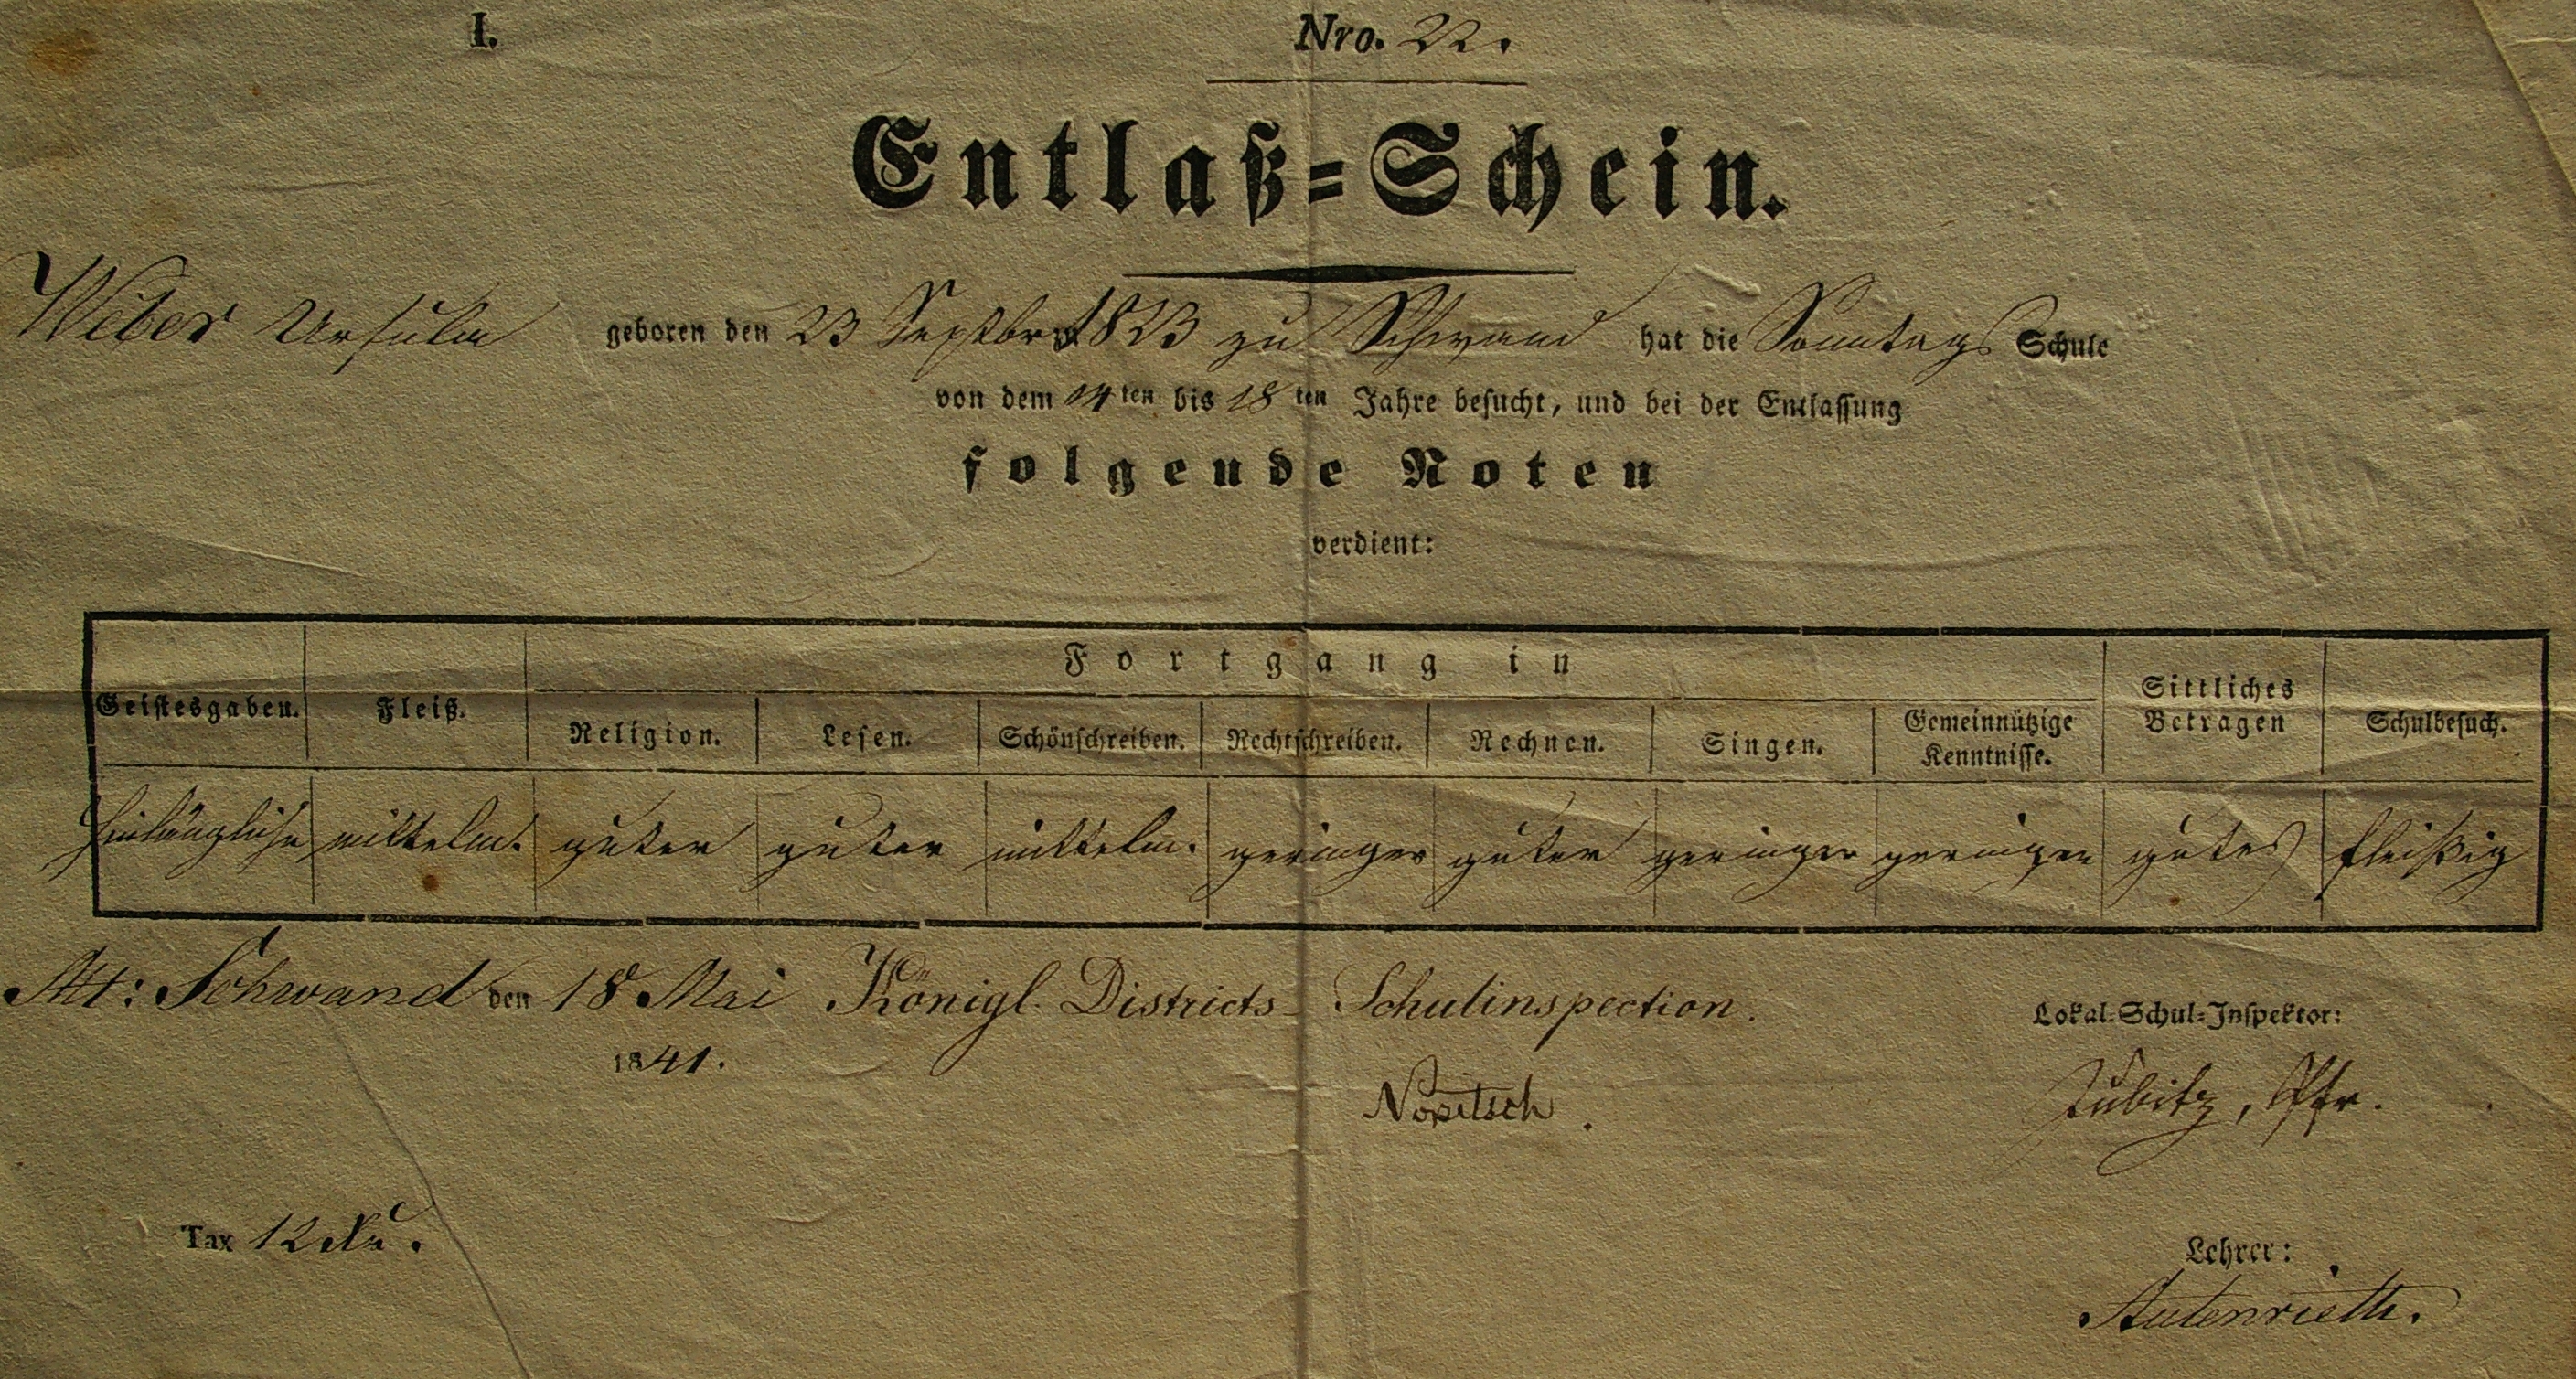 I. Nro. 22.
Entlaß=Schein.
Weber Ursula geboren den 23 Septbr 1823 zu Schwand hat die Sonntags Schule
von dem 14ten bis 18ten Jahre besucht, und bei der Entlassung
folgende Noten
verdient:
Fortgang in
Geistesgaben. Fleiß. Religion. Lesen. Schönschreiben. Rechtschreiben. Rechnen. Singen. Gemeinnützige Kenntnisse. Sittliches Betragen Schulbesuch.
hinlängliche mittelm. guter guter mittelm. geringer guter geringer geringer gutes fleißig
Mt: Schwand den 18 Mai Königl. Districts- Schulinspection. Lokal-Schul-Inspektor:
1841.
Nopitsch. Pfr.
Tax 12 Lehrer:
Autenrieth.